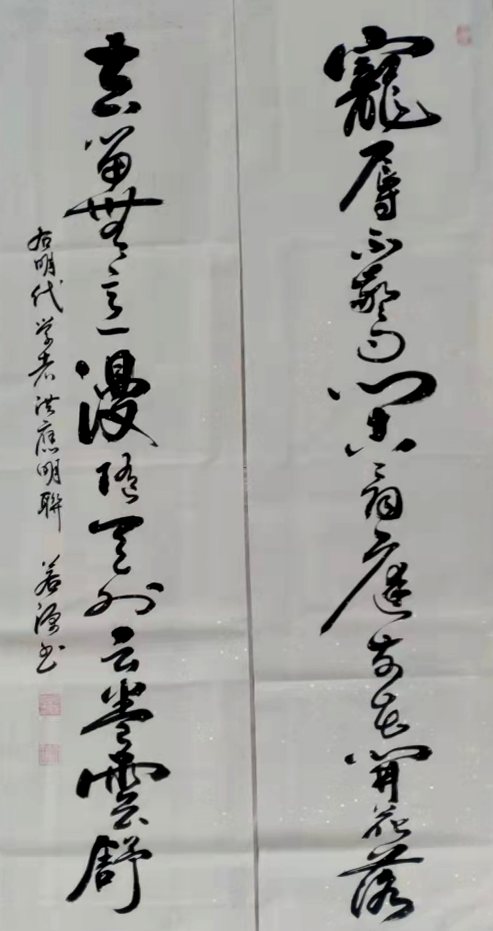 寵辱不驚閑看庭前花開花落
去留無意漫隨天外云卷雲舒
右明代学者洪應明聯
若 书